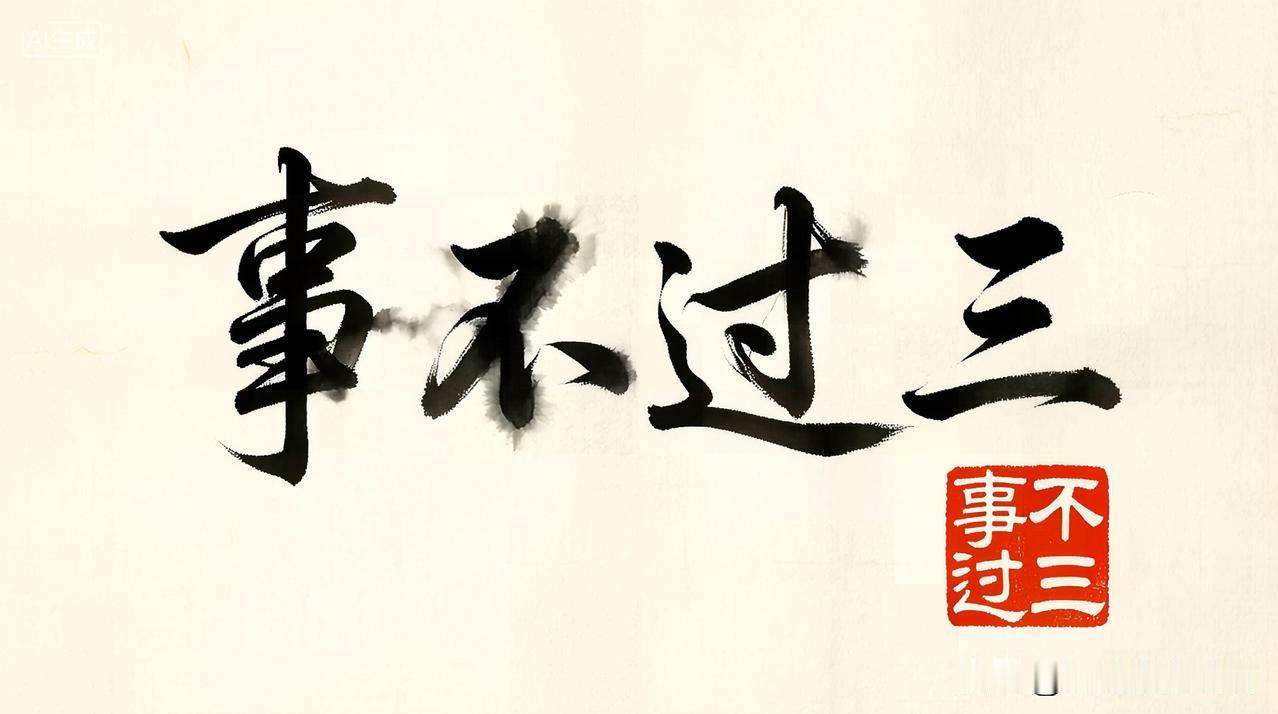 AI生成
事不过三
事不
过三